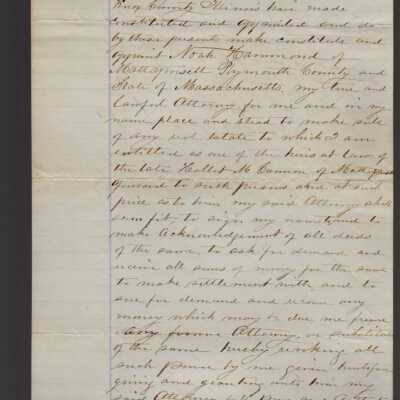 County Illinois have made
constituted and appointed and do
by these presents make constitute and
appoint Noah Hammond of
Mattapoisett Plymouth County and
State of Massachusetts, my true and
Lawful Attorney for me and in my
name place and stead to make sale
of any real estate to which I am
entitled as one of the heirs at law of
the late Hallet M Cannon of
aforesaid to such person and at such
price as to him my said Attorney shall
seem fit to sign my name and to
make Acknowledgement of all deeds
of the same, to ask for demand and
receive all sums of money for the same
to make settlement with, and to
sue for demand and recover any
money which may be due me from
any former Attorney, or substitute
of the same hereby revoking all
such power by me given heretofore
giving and granting unto him my
said Attorney full power and